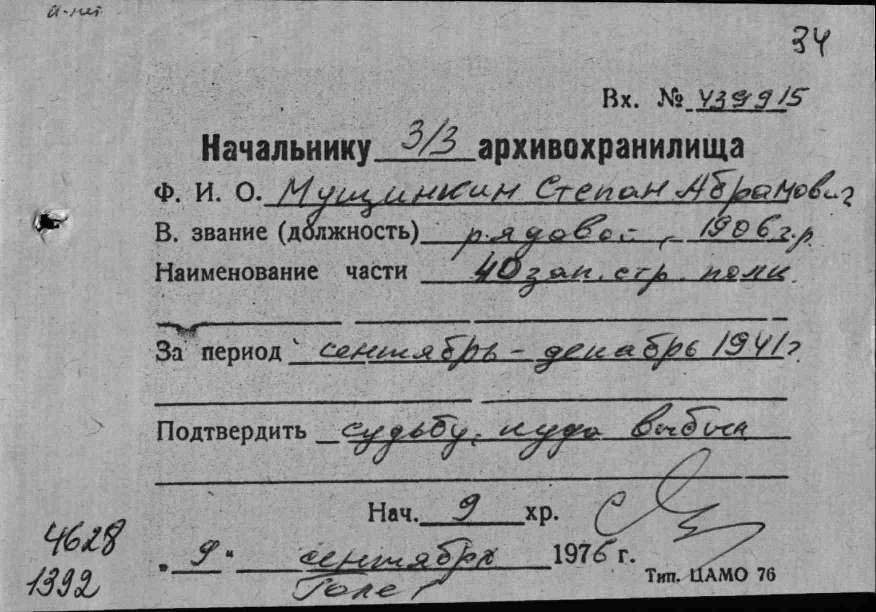 34
Вх. № 439915
Начальнику 3/3 архивохранилища
Ф. И. О. Мущинкин Степан Абрамович
В. звание (должность) рядовой, 1906 г.р.
Наименование части 40 зап. стр. полк.
За период сентябрь - декабрь 1941 г
Подтвердить судьбу, куда выбыл
Нач. 9 хр.
4628
„ 9 “ сентября 1976 г.
1392
Тип. ЦАМО 76